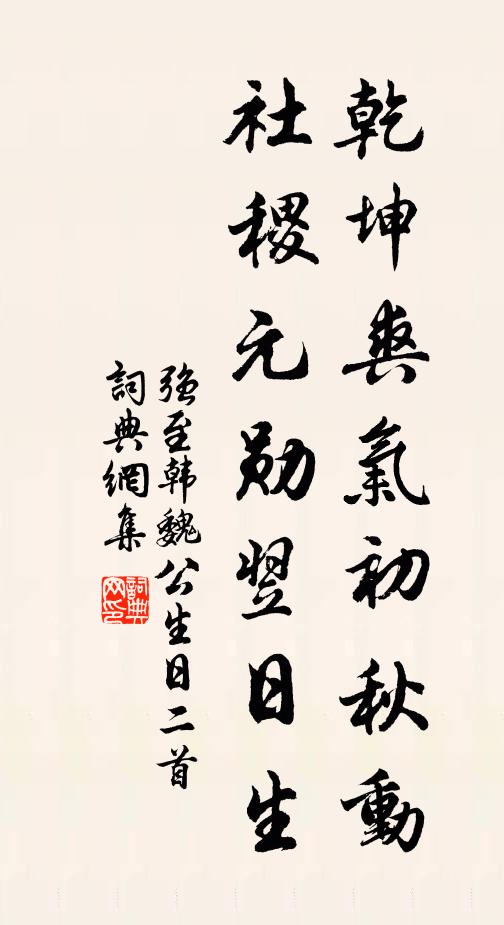 乾坤爽氣初秋動
社稷元勋翌日生
强至韩魏公生日二首
詞典網集
詞典網印